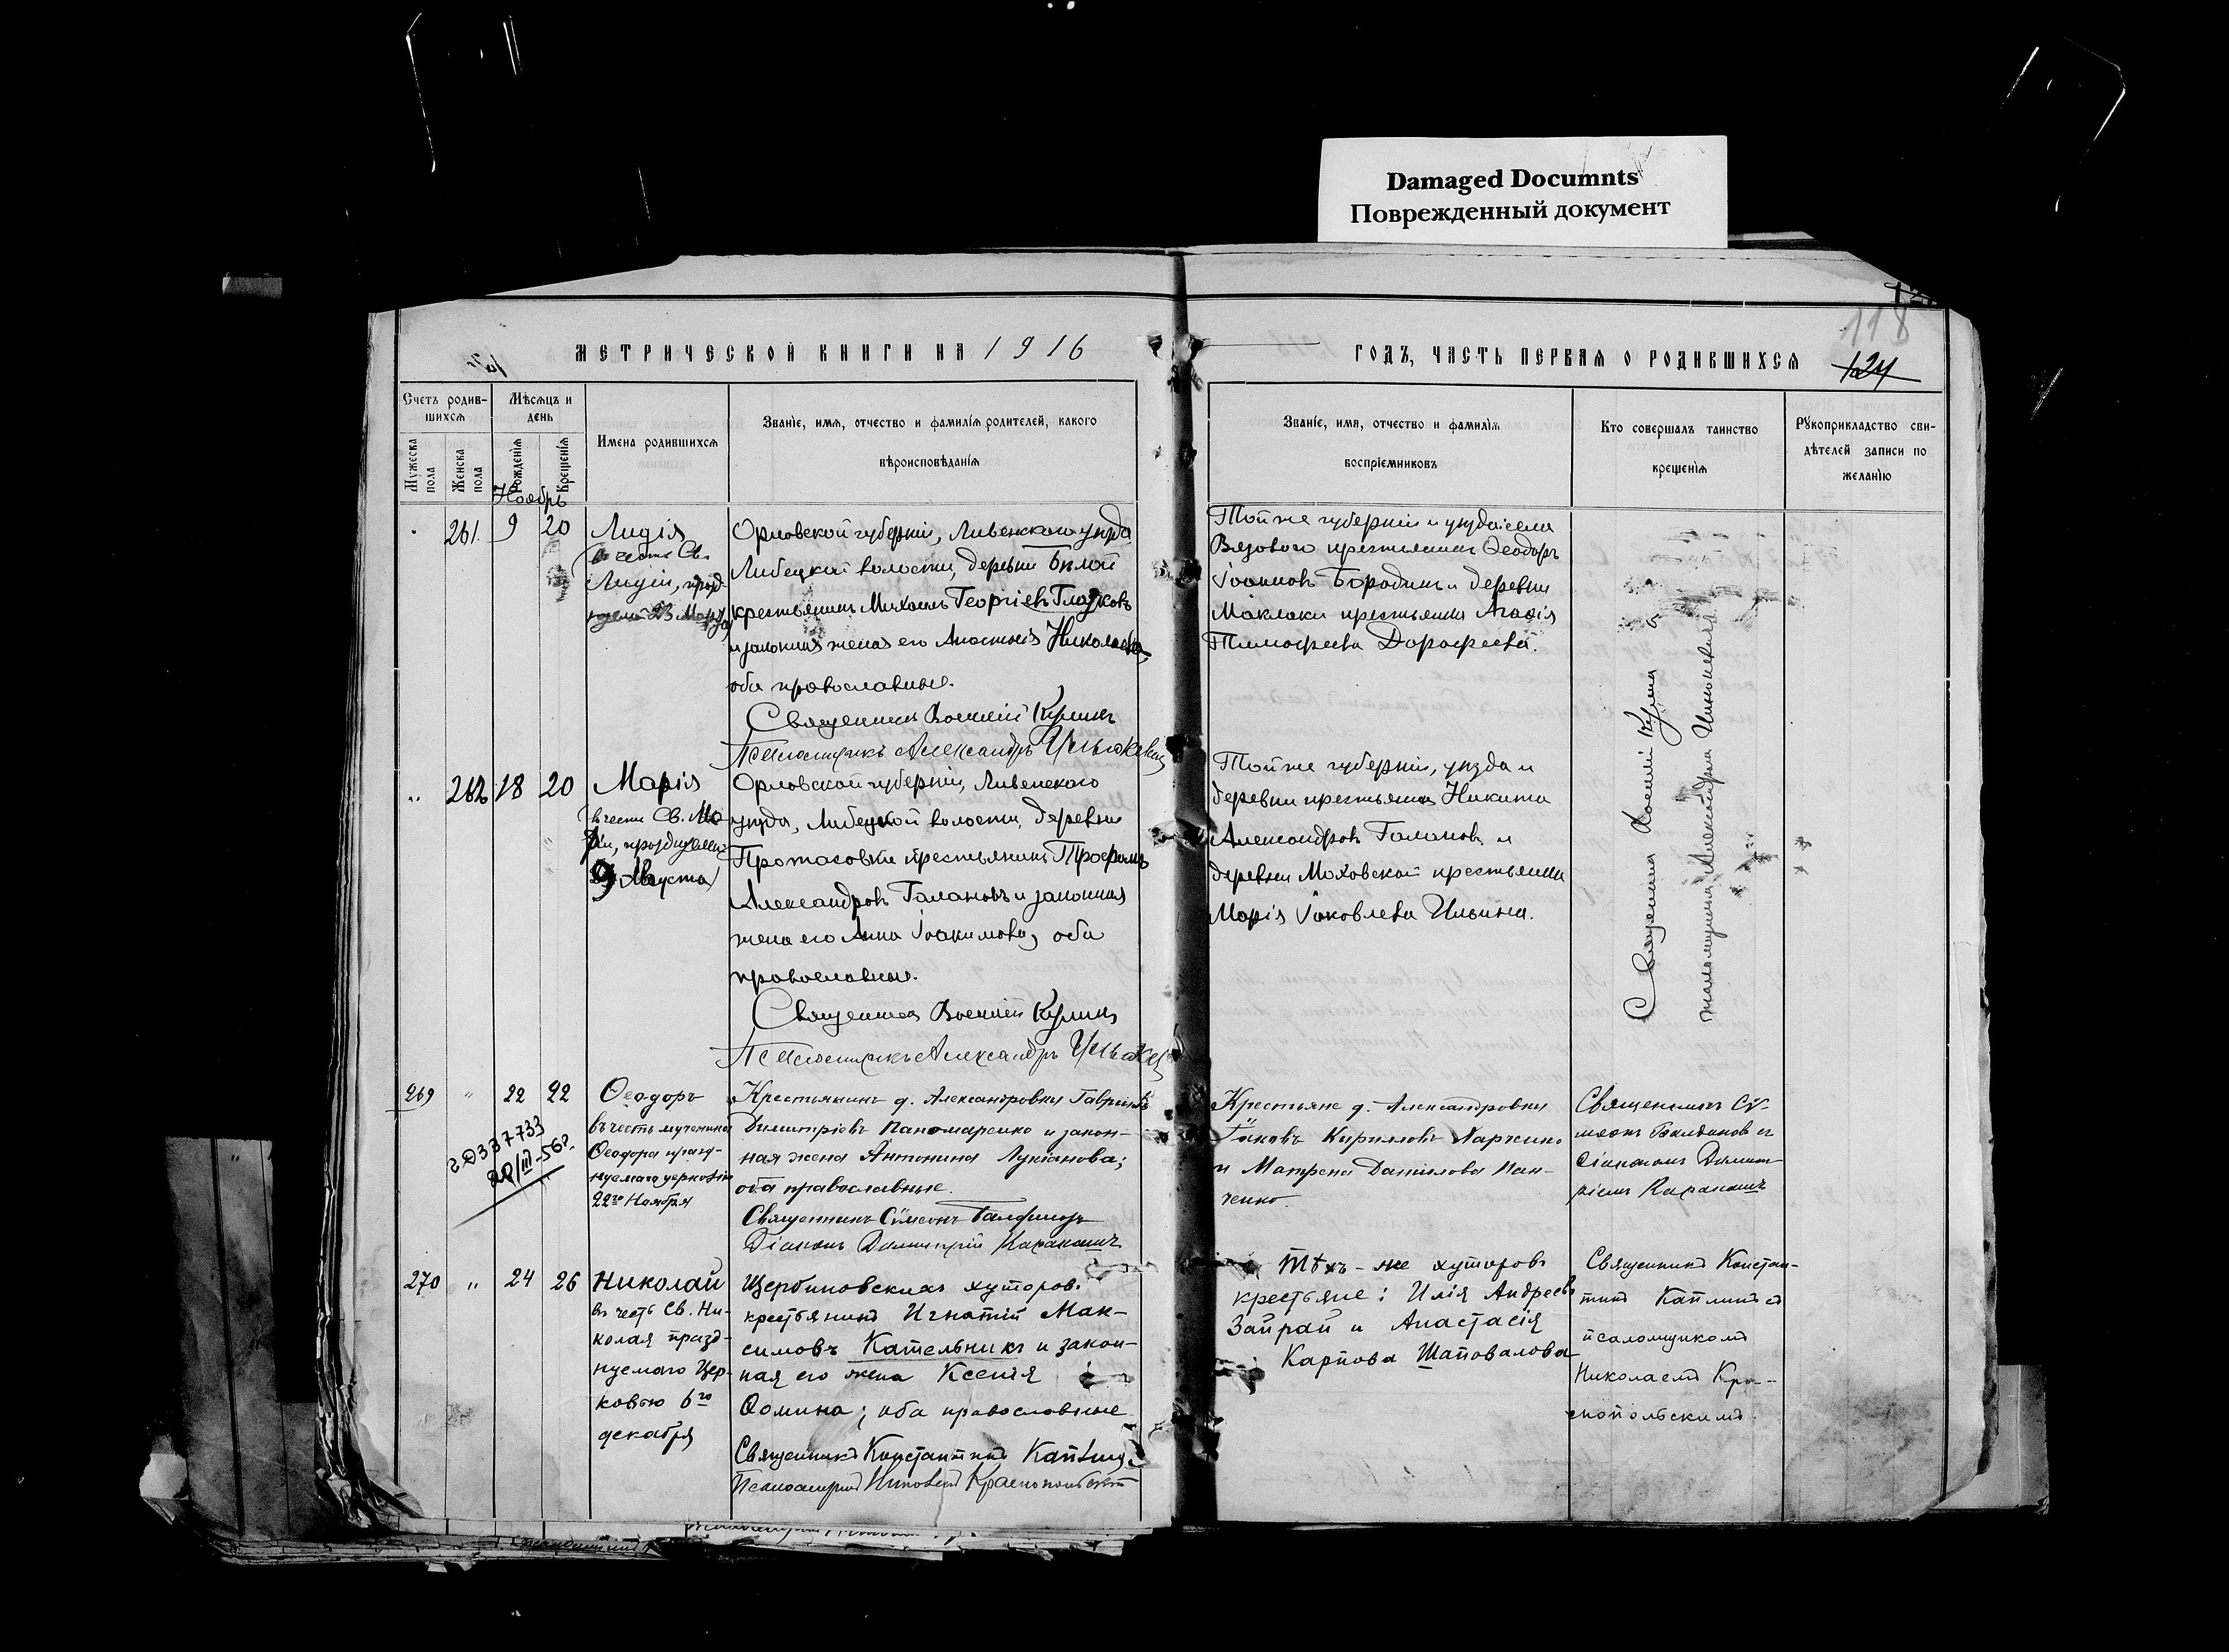 Damaged Documnts
Поврежденный документ
118
МЕТРИЧЕСКОЙ КНИГИ НА 1916
ГОДЪ, ЧАСТЬ ПЕРВАЯ О РОДИВШИХСЯ
124
Счетъ родив-
шихся
Мѣсяцъ и
день
Мужеска
пола
Женска
пола
Рожденія
Крещенія
Имена родившихся
Званіе, имя, отчество и фамилія родителей, какого
вѣроисповѣданія
Званіе, имя, отчество и фамилія
воспріемниковъ
Кто совершалъ таинство
крещенія
Рукоприкладство сви-
дѣтелей записи по
желанію
Ноябрь
261. 9 20
Лидія
въ честь Св.
Лидіи, празд-
23 Марта
Орловской губерніи, Ливенскаго уѣзда
Либецкой волости, деревни Бѣлой
крестьянинъ Михаилъ Георгіевъ Глазковъ
и законная жена его Анастасія Николаева,
оба православные.
Священникъ Василій Куликъ
Псаломщикъ Александръ
Той же губерніи и уѣзда села
Вязового крестьянинъ Ѳеодоръ
Іоанновъ Бородинъ и деревни
Маклаки крестьянка Агаѳія
Тимофеева Дорофеева.
Священникъ Василій
псаломщикомъ Александромъ
" 262 18 20
Марія
въ честь Св. Ма-
ріи, празднуемой
9 Августа
Орловской губерніи, Ливенскаго
уѣзда, Либецкой волости, деревни
Протасовки крестьянинъ Трофимъ
Александровъ Галановъ и законная
жена его Анна Іоакимова, оба
православные.
Священникъ Василій Куликъ
Псаломщикъ Александръ
Той же губерніи, уѣзда и
деревни крестьянинъ Никита
Александровъ Галановъ и
деревни Маховской крестьянка
Марія Іаковлева Ильина.
269 " 22 22
2 337733
20/III-56г.
Ѳеодоръ
въ честь мученика
Ѳеодора празд-
нуемаго церковію
22го Ноября
Крестьянинъ д. Александровки Гавріилъ
Димитріевъ Панамаренко и закон-
ная жена Антонина Лукіанова;
оба православные.
Священникъ Сѵмеонъ
Діаконъ Димитрій Каракашъ
Крестьяне д. Александровки
Іаковъ Кирилловъ Харченко
и Матрена Даніилова Пан-
ченко.
Священникъ Сѵ-
меонъ съ
діакономъ Димит-
ріемъ Каракашъ
270 " 24 26
Николай
въ честь Св. Ни-
колая празд-
нуемаго Цер-
ковью 6го
декабря
Щербиновскихъ хуторовъ
крестьянинъ Игнатій Мак-
симовъ Кательникъ и закон-
ная его жена Ксенія
Ѳомина; оба православные
Священникъ Константинъ Каплинъ
Псаломщикъ Николай Краснопольскій
Тѣхъ-же хуторовъ
крестьяне: Илія Андреевъ
Заирай и Анастасія
Карпова Шаповалова
Священникъ Констан-
тинъ Каплинъ съ
псаломщикомъ
Николаемъ Кра-
снопольскимъ